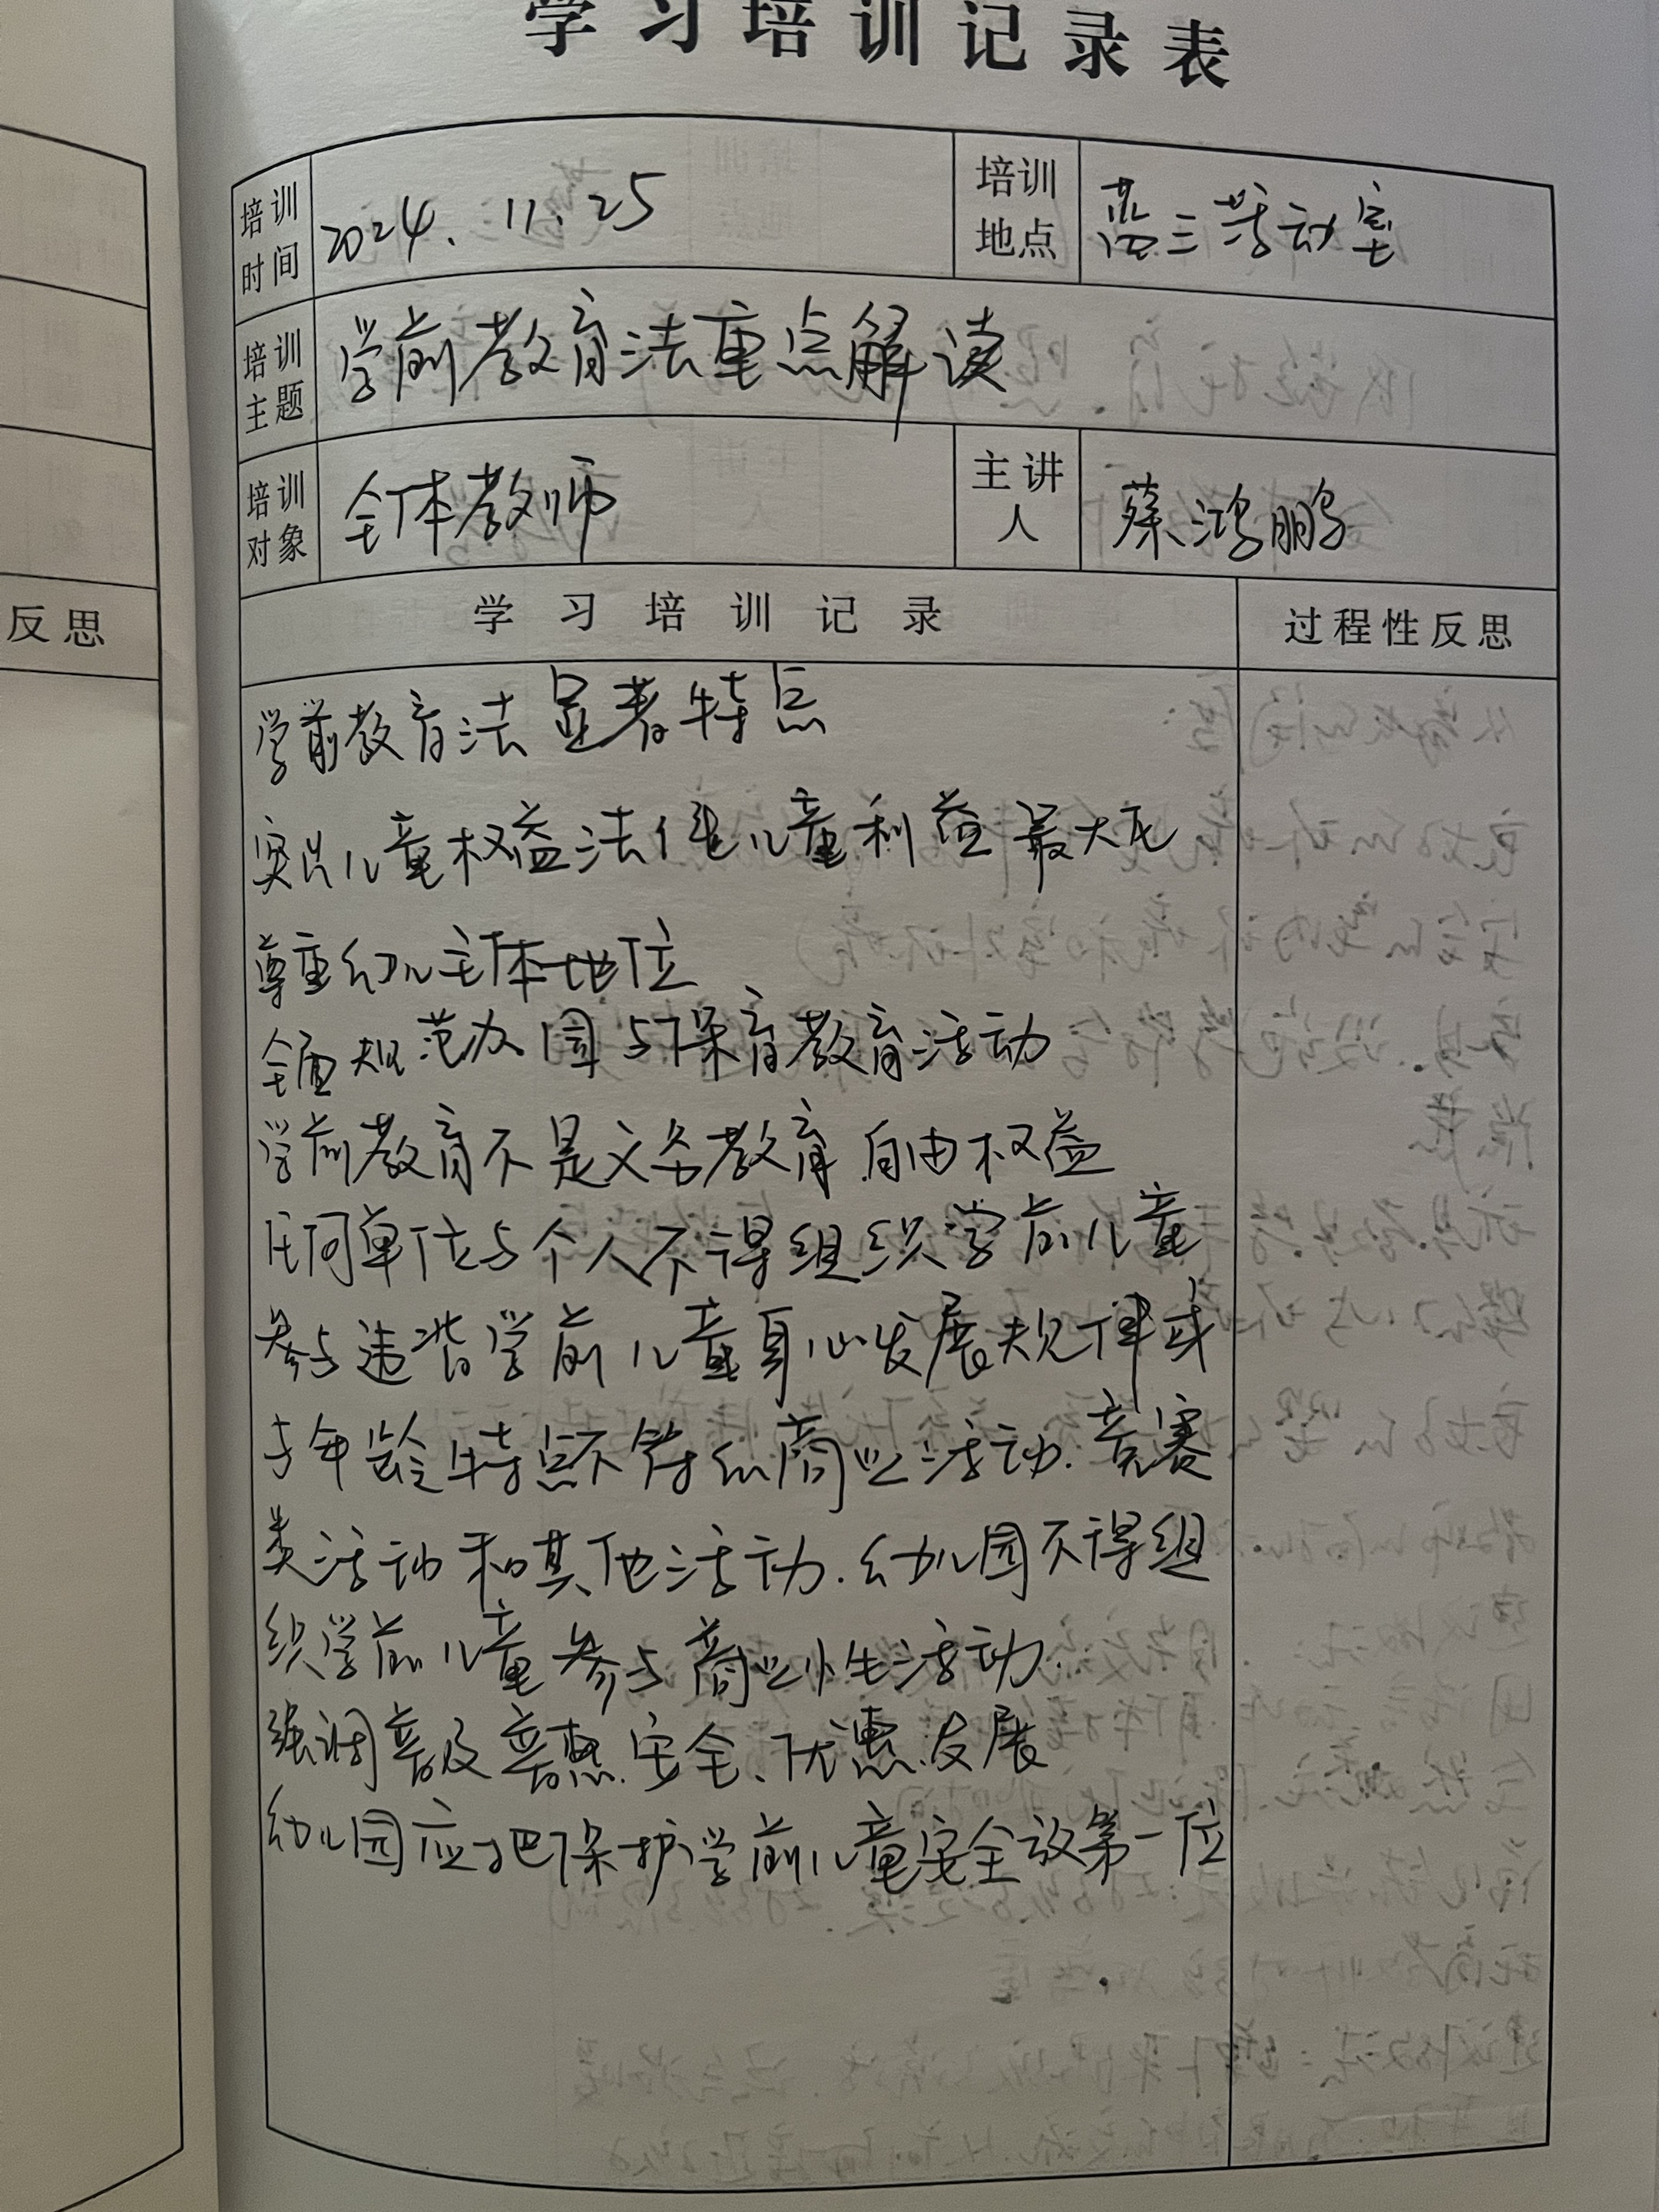 学习培训记录表
培训时间 2024.11.25 培训地点 蓝三活动室
培训主题 学前教育法重点解读
培训对象 全体教师 主讲人 蔡鸿鹏
反思
学习培训记录 过程性反思
学前教育法显著特点
实儿童权益法儿童利益最大
尊重幼儿主体地位
全面规范办园与保育教育活动
学前教育不是义务教育.自由权益
任何单位与个人不得组织学前儿童
参与违背学前儿童身心发展规律或
与年龄特点不符的商业活动.竞赛
类活动和其他活动.幼儿园不得组
织学前儿童参与商业性活动.
强调普及普惠.安全、优惠发展
幼儿园应把保护学前儿童安全放第一位